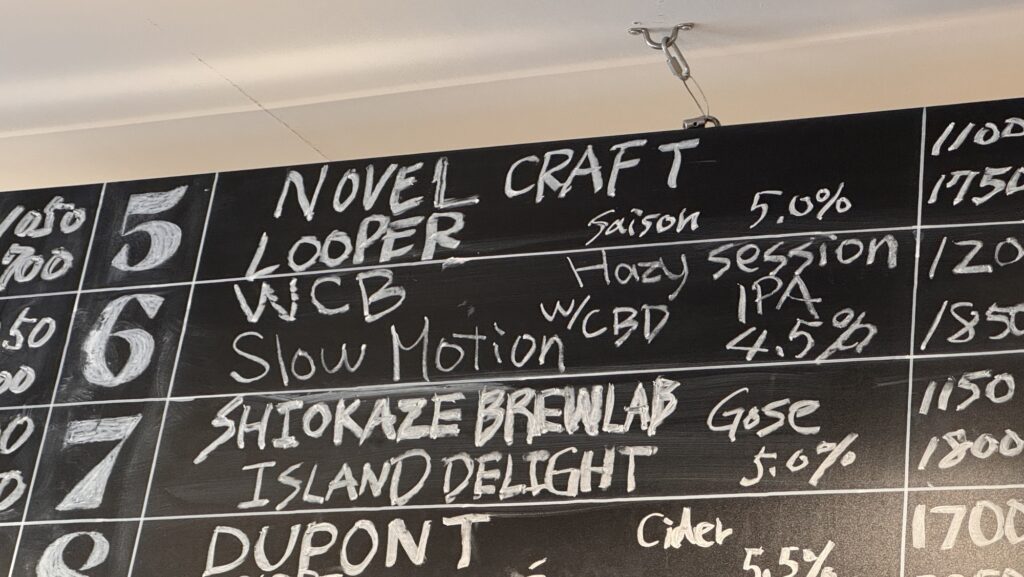 1050 5 NOVEL CRAFT 1100
700 LOOPER Saison 5.0% 1750
50 6 WCB Hazy session IPA 120
00 Slow Motion w/CBD 4.5% 1850
0 7 SHIOKAZE BREWLAB Gose 1150
0 ISLAND DELIGHT 5.0% 1800
8 DUPONT Cider 5.5% 1700